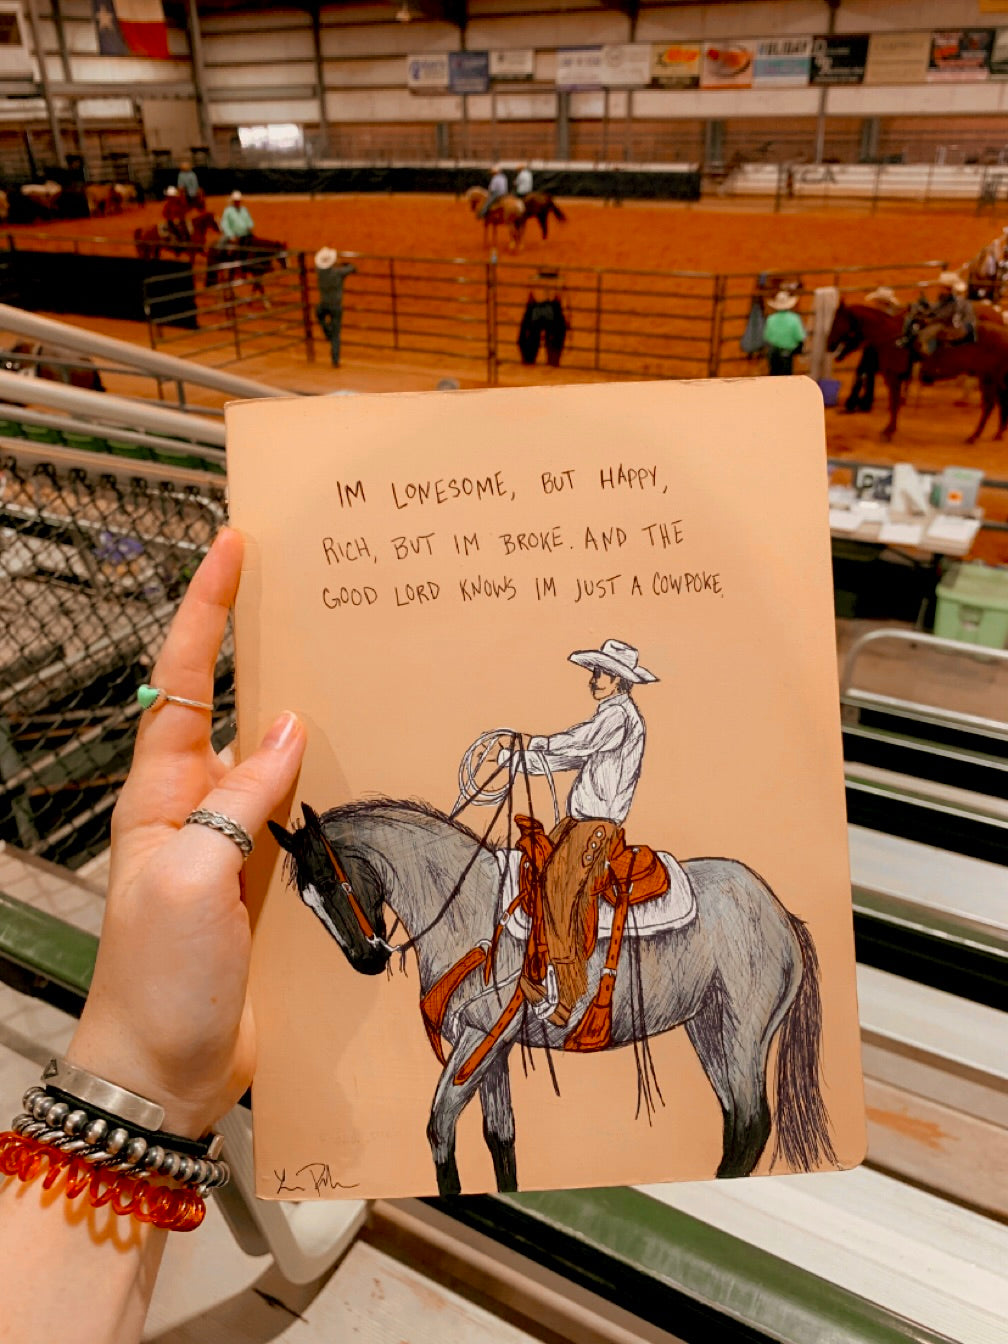 IM LONESOME, BUT HAPPY,
RICH, BUT IM BROKE. AND THE
GOOD LORD KNOWS IM JUST A COWPOKE.